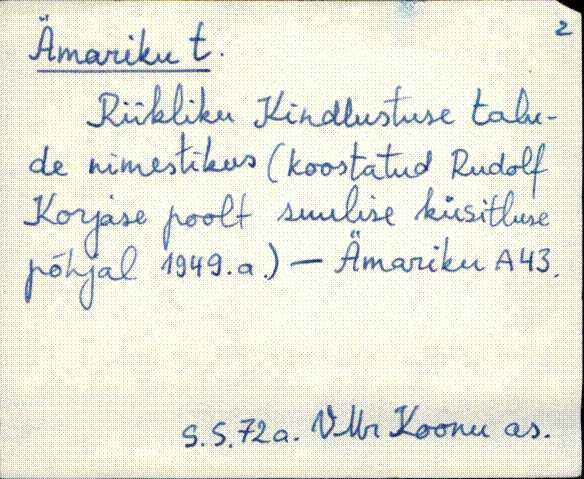 2
Ämariku t.
Riikliku Kindlustuse talu-
de nimestikus (koostatud Rudolf
Korjase poolt suulise küsitluse
põhjal 1949.a.) — Ämariku A43.
S.S.72a. VMr Koonu as.